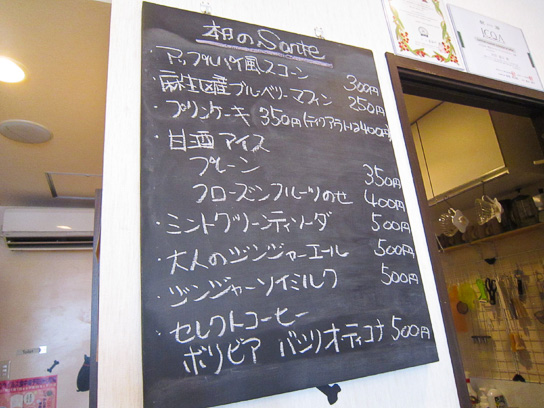 本日のSante
・アップルパイ風スコーン 300円
・麻生区産ブルーベリーマフィン 250円
・プリンケーキ 350円(テイクアウトは400円)
・甘酒アイス
プレーン 350円
フローズンフルーツのせ 400円
・ミントグリーンティソーダ 500円
・大人のジンジャーエール 500円
・ジンジャーソイミルク 500円
・セレクトコーヒー
ボリビア バシリオティコナ 500円
ICQA